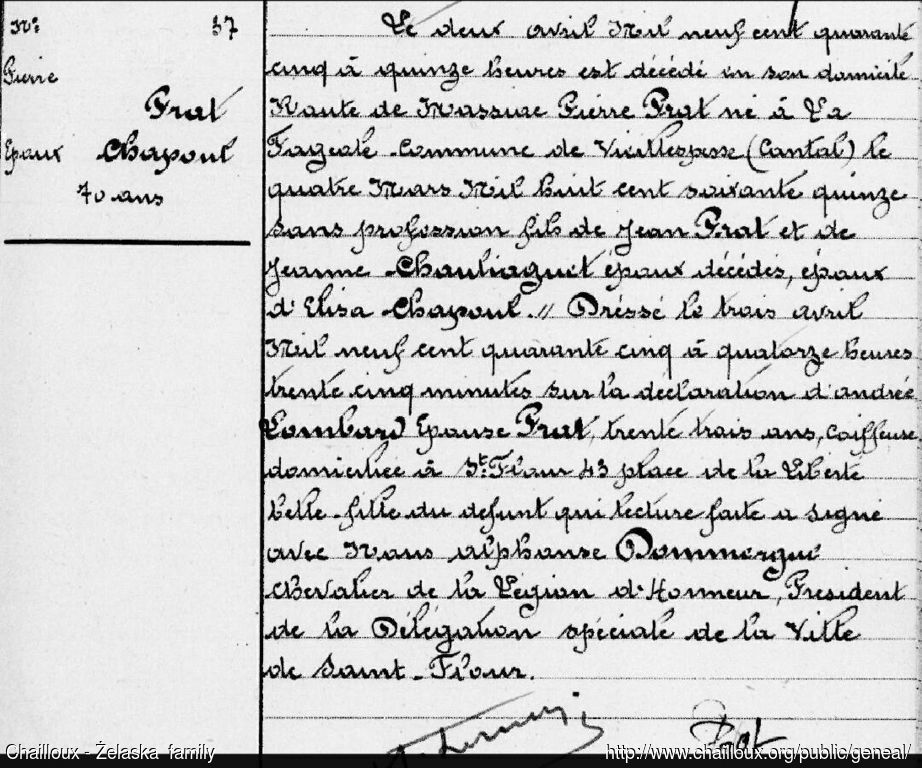 N° 37
Pierre
Prat
Epoux Chapoul
70 ans
Le deux avril Mil neuf cent quarante
cinq à quinze heures est décédé en son domicile
Route de Massiac Pierre Prat né à La
Fageole Commune de Vieillespesse (Cantal) le
quatre Mars Mil huit cent soixante quinze
sans profession fils de Jean Prat et de
Jeanne Chauliaguet époux décédés, époux
d'Elisa Chapoul. // Dréssé le trois avril
Mil neuf cent quarante cinq à quatorze heures
trente cinq minutes sur la déclaration d'andrée
Lombard Epouse Prat, trente trois ans, coiffeuse
domiciliée à St Flour 43 place de la Liberté
belle-fille du défunt qui lecture faite a signé
avec Nous Alphonse Dommergue
chevalier de la Légion d'Honneur, Président
de la Délégation spéciale de la Ville
de Saint-Flour.
Prat
Chailloux - Żelaska family
http://www.chailloux.org/public/geneal/